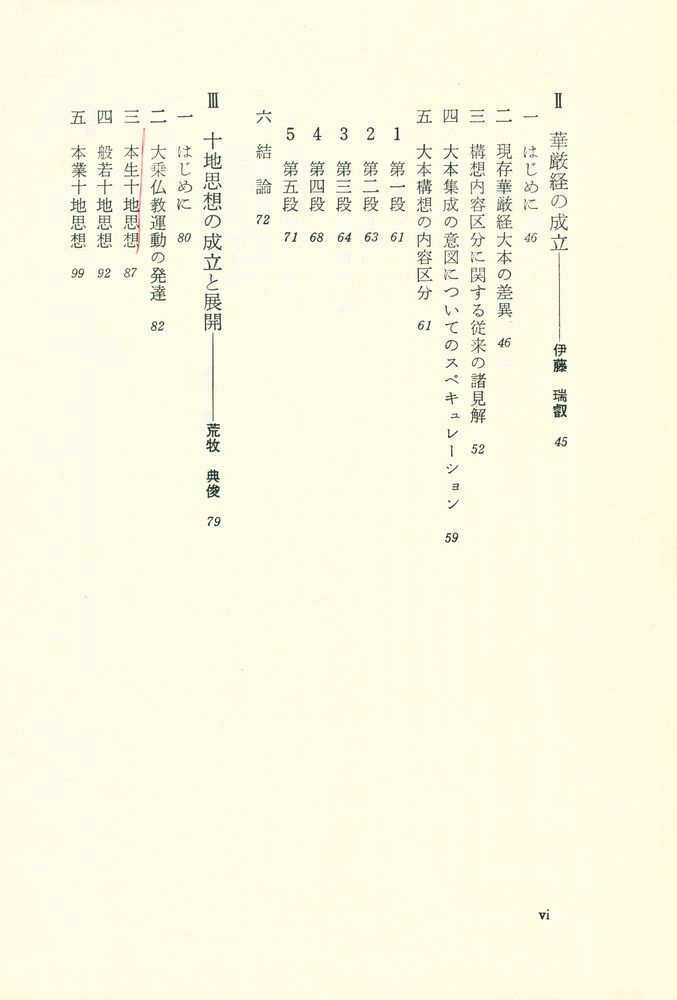 Ⅱ 華厳経の成立――伊藤 瑞叡 45
一 はじめに 46
二 現存華厳経大本の差異 46
三 構想内容区分に関する従来の諸見解 52
四 大本集成の意図についてのスペキュレーション 59
五 大本構想の内容区分 61
1 第一段 61
2 第二段 63
3 第三段 64
4 第四段 68
5 第五段 71
六 結論 72
Ⅲ 十地思想の成立と展開――荒牧 典俊 79
一 はじめに 80
二 大乗仏教運動の発達 82
三 本生十地思想 87
四 般若十地思想 92
五 本業十地思想 99
vi